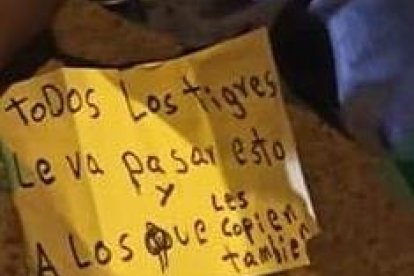 toDOS Los tigres
Le va pasar esto
Y
A LOS QUE LES copien
tambien